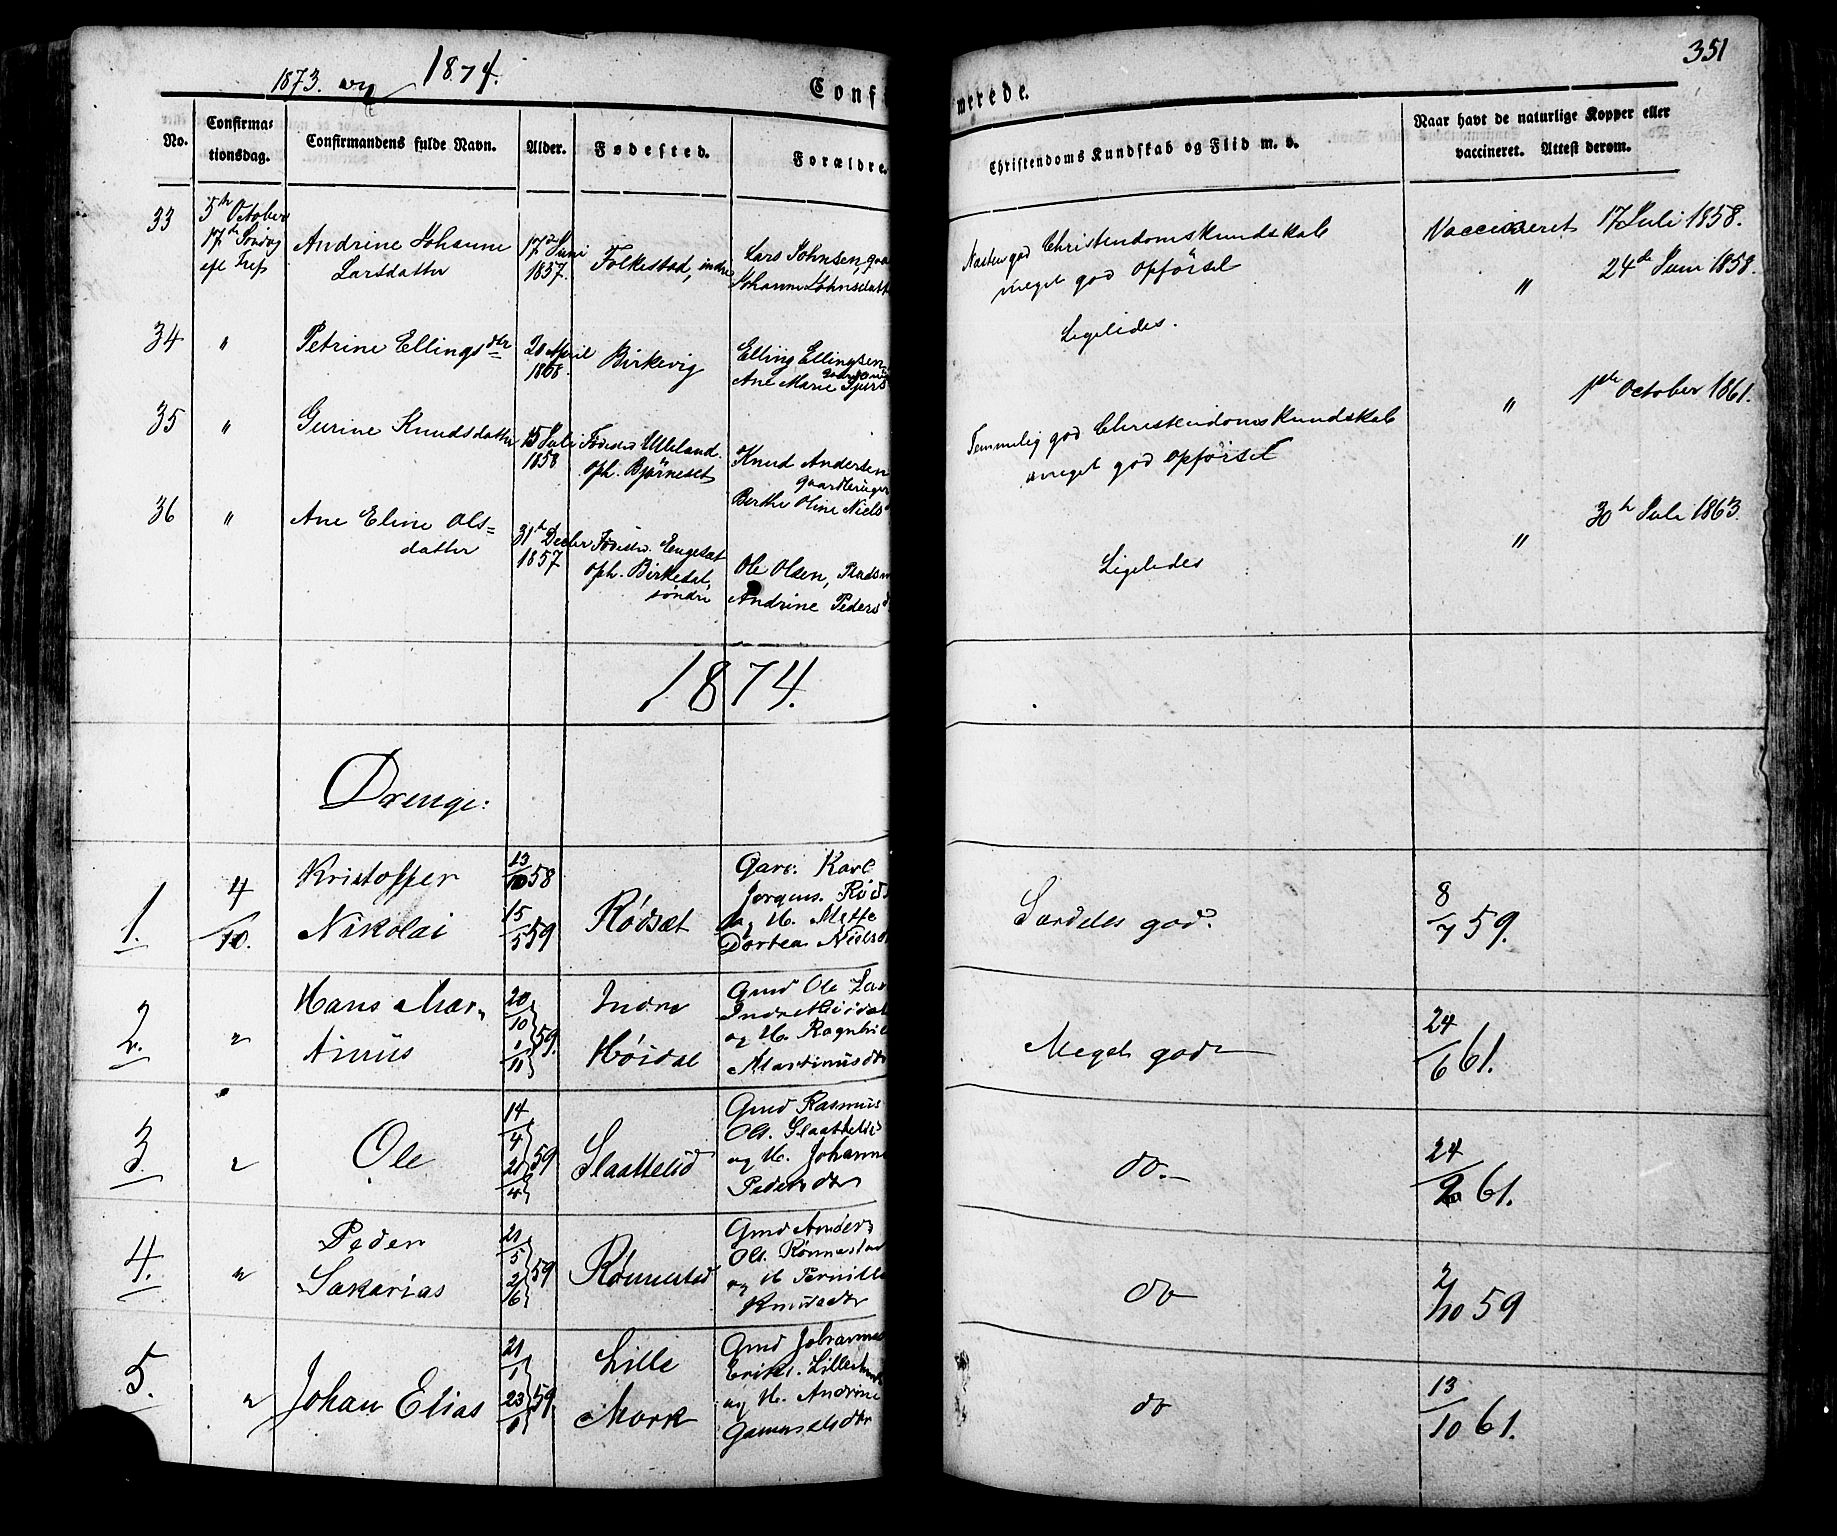 351
1873. og 1874.
Conf merede.
No.
Confirma-
tionsdag.
Confirmandens fulde Navn.
Alder.
Fødested.
Forældre.
Christendoms Kundskab og Flid m. v.
Naar havt de naturlige Kopper eller
vaccineret. Attest derom.
33
5te October
17de Søndag
eft Tref
Andrine Johanne
Larsdatter
17de Juni
1857.
Folkestad, indre
Lars Johnsen,
Johanne Johnsdatt
Næsten god Christendomskundskab
meget god Opførsel
Vaccineret 17 Juli 1858.
34
"
Petrine Ellingsdtr
20 April
1858.
Birkevig
Elling Ellingsen
Ane Marie
Ligeledes.
" 24de Juni 1858.
35
"
Gurine Knudsdatter
15 Juli
1858
Fødested Ulleland
oph. Bjørneset
Knud Andersen
gaardbruger
Berthe Oline Niels
Temmelig god Christendomskundskab
meget god Opførsel
" 1ste October 1861.
36
"
Ane Eline Ols=
datter
31te Decbr
1857
Fødested Engeset
oph. Birkedal,
søndre
Ole Olsen, Pladsm
Andrine Peders
Ligeledes
" 30te Juli 1863.
1874.
Drenge:
1.
4/10.
Kristoffer
Nikolai
13/10 58
15/5 59
Rødsæt
Karl
Jørgens. Rød
og H. Mette
Dortea Niels
Særdeles god.
8/7 59.
2.
"
Hans Mar,
tinus
20/10
1/11 59.
Indre
Høidal
Gmd Ole Lar
Indre Høidal
og H. Ragnhild
Martinusdtr
Meget god
24/6 61.
3.
"
Ole
14/4
20/4 59
Slaattelid
Gmd Rasmus
Ols. Slaattelid
og H. Johanne
Pedersdtr
do.
24/9 61.
4.
"
Peder
Sakarias
21/5
2/6 59
Rønnestad
Gmd Anders
Ols. Rønnestad
og H Pernille
Knudsdtr
do
2/10 59
5.
"
Johan Elias
21/1
23/1 59
Lille
Mork
Gmd Johannes
Eriks. Lillemork
og H. Andrine
Gammelsdtr
do
13/10 61.